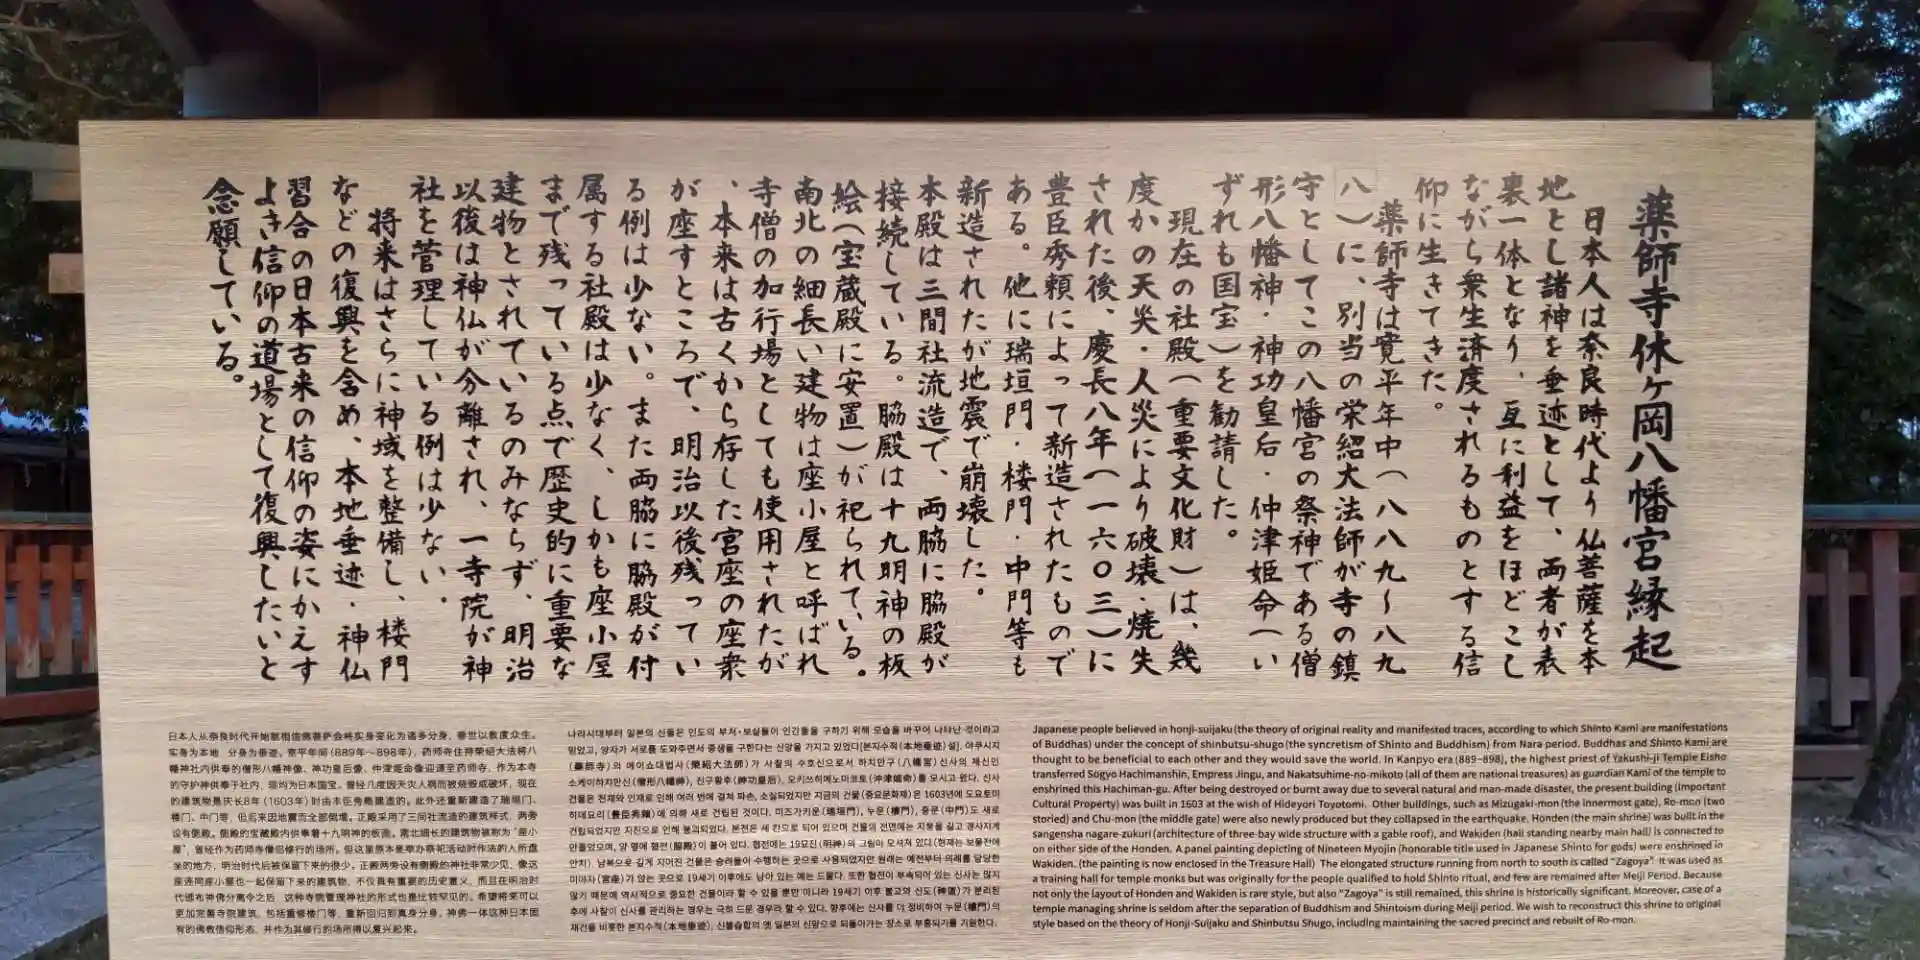 薬師寺休ヶ岡八幡宮縁起
日本人は奈良時代より仏菩薩を本
地とし諸神を垂迹として、両者が表
裏一体となり、互に利益をほどこし
ながら衆生済度されるものとする信
仰に生きてきた。
薬師寺は寛平年中(八八九〜八九
八)に、別当の栄紹大法師が寺の鎮
守としてこの八幡宮の祭神である僧
形八幡神・神功皇后・仲津姫命(い
ずれも国宝)を勧請した。
現在の社殿(重要文化財)は、幾
度かの天災・人災により破壊・焼失
された後、慶長八年(一六〇三)に
豊臣秀頼によって新造されたもので
ある。他に瑞垣門・楼門・中門等も
新造されたが地震で崩壊した。
本殿は三間社流造で、両脇に脇殿が
接続している。脇殿は十九明神の板
絵(宝蔵殿に安置)が祀られている。
南北の細長い建物は座小屋と呼ばれ
寺僧の加行場としても使用されたが
、本来は古くから存した宮座の座衆
が座すところで、明治以後残ってい
る例は少ない。また両脇に脇殿が付
属する社殿は少なく、しかも座小屋
まで残っている点で歴史的に重要な
建物とされているのみならず、明治
以後は神仏が分離され、一寺院が神
社を管理している例は少ない。
将来はさらに神域を整備し、楼門
などの復興を含め、本地垂迹・神仏
習合の日本古来の信仰の姿にかえす
よき信仰の道場として復興したいと
念願している。
日本人从奈良时代开始就相信佛菩萨会将实身变化为诸多分身，善世以救度众生。
实身为本地，分身为垂迹。宽平年间（889年～898年），药师寺住持荣绍大法将八
幡神社内供奉的僧形八幡神像、神功皇后像、仲津姬命像迎请至药师寺，作为本寺
的守护神供奉于社内，均为日本国宝。曾经几度因天灾人祸而被烧毁或破坏，现在
的建筑物是庆长8年（1603年）时由丰臣秀赖建造的。此外还重新建造了瑞垣门、
楼门、中门等，但后来因地震而全部倒塌。正殿采用了三间社流造的建筑样式，两旁
设有侧殿。侧殿的宝藏殿内供奉着十九明神的板画。南北细长的建筑物被称为“座小
屋”，曾经作为药师寺僧侣修行的场所。但这里原本是举办祭祀活动时作法的人所盘
坐的地方，明治时代后被保留下来的很少。正殿两旁设有侧殿的神社非常少见，像这
座连同座小屋也一起保留下来的建筑物，不仅具有重要的历史意义，而且在明治时
代颁布神佛分离令之后，这种寺院管理神社的形式也是比较罕见的。希望将来可以
更加完善寺院建筑，包括重修楼门等，重新回归到真身分身、神佛一体这种日本固
有的佛教信仰形态，并作为其修行的场所得以复兴起来。
나라시대부터 일본의 신들은 인도의 부처·보살들이 인간들을 구하기 위해 모습을 바꾸어 나타난 것이라고
믿었고, 양자가 서로를 도와주면서 중생을 구한다는 신앙을 가지고 있었다[본지수적(本地垂迹)설]. 야쿠시지
(藥師寺)의 에이쇼대법사(榮紹大法師)가 사찰의 수호신으로서 하치만구(八幡宮)신사의 제신인
소게이하치만신(僧形八幡神), 진구황후(神功皇后), 오키쓰히메노미코토(沖津姫命)를 모시고 왔다. 신사
건물은 천재와 인재로 인해 여러 번에 걸쳐 파손, 소실되었지만 지금의 건물(중요문화재)은 1603년에 도요토미
히데요리(豊臣秀頼)에 의해 새로 건립된 것이다. 미즈가키문(瑞垣門), 누문(樓門), 중문(中門)도 새로
건립되었지만 지진으로 인해 붕괴되었다. 본전은 세 칸으로 되어 있으며 건물의 전면에는 지붕을 길고 경사지게
만들었으며, 양 옆에 협전(脇殿)이 붙어 있다. 협전에는 19묘진(明神)의 그림이 모셔져 있다(현재는 보물전에
안치). 남북으로 길게 지어진 건물은 승려들이 수행하는 곳으로 사용되었지만 원래는 예전부터 의례를 담당한
미야자(宮座)가 앉는 곳으로 19세기 이후에도 남아 있는 예는 드물다. 또한 협전이 부속되어 있는 신사는 많지
않기 때문에 역사적으로 중요한 건물이라 할 수 있을 뿐만 아니라 19세기 이후 불교와 신도(神道)가 분리된
후에 사찰이 신사를 관리하는 경우는 극히 드문 경우라 할 수 있다. 향후에는 신사를 더 정비하여 누문(樓門)의
재건을 비롯한 본지수적(本地垂迹), 신불습합의 옛 일본의 신앙으로 되돌아가는 장소로 부흥되기를 기원한다.
Japanese people believed in honji-suijaku (the theory of original reality and manifested traces, according to which Shinto Kami are manifestations
of Buddhas) under the concept of shinbutsu-shugo (the syncretism of Shinto and Buddhism) from Nara period. Buddhas and Shinto Kami are
thought to be beneficial to each other and they would save the world. In Kanpyo era (889-898), the highest priest of Yakushi-ji Temple Eisho
transferred Sogyo Hachimanshin, Empress Jingu, and Nakatsuhime-no-mikoto (all of them are national treasures) as guardian Kami of the temple to
enshrined this Hachiman-gu. After being destroyed or burnt away due to several natural and man-made disaster, the present building (Important
Cultural Property) was built in 1603 at the wish of Hideyori Toyotomi. Other buildings, such as Mizugaki-mon (the innermost gate), Ro-mon (two
storied) and Chu-mon (the middle gate) were also newly produced but they collapsed in the earthquake. Honden (the main shrine) was built in the
sangensha nagare-zukuri (architecture of three-bay wide structure with a gable roof), and Wakiden (hall standing nearby main hall) is connected to
on either side of the Honden. A panel painting depicting of Nineteen Myojin (honorable title used in Japanese Shinto for gods) were enshrined in
Wakiden. (the painting is now enclosed in the Treasure Hall) The elongated structure running from north to south is called "Zagoya". It was used as
a training hall for temple monks but was originally for the people qualified to hold Shinto ritual, and few are remained after Meiji Period. Because
not only the layout of Honden and Wakiden is rare style, but also "Zagoya" is still remained, this shrine is historically significant. Moreover, case of a
temple managing shrine is seldom after the separation of Buddhism and Shintoism during Meiji period. We wish to reconstruct this shrine to original
style based on the theory of Honji-Suijaku and Shinbutsu Shugo, including maintaining the sacred precinct and rebuilt of Ro-mon.